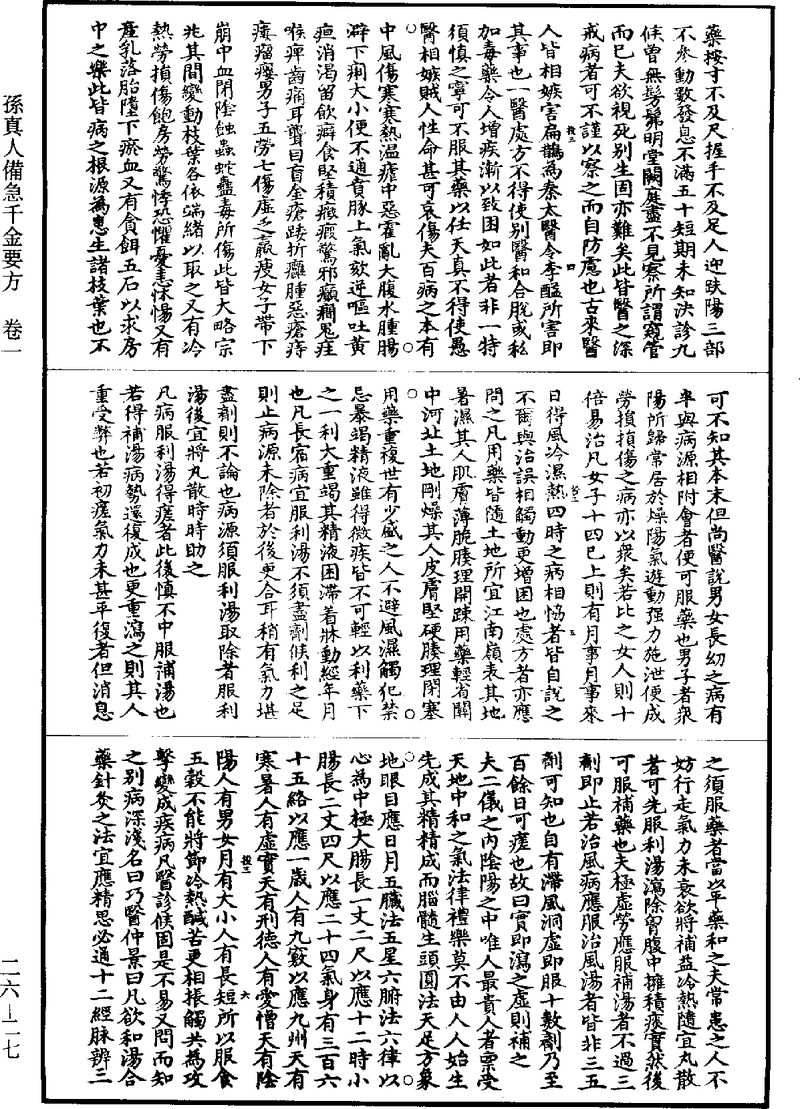 藥按寸不及尺握手不及足人迎趺陽三部
不參動數發息不滿五十短期未知決診九
候曾無髣髴明堂闕庭盡不見察所謂窺管
而已夫欲視死別生固亦難矣此皆醫之深
戒病者可不謹以察之而自防慮也古來醫
人皆相嫉害扁鵲為秦太醫令李醯所害即
其事也一醫處方不得使別醫和合脫或私
加毒藥令人增疾漸以致困如此者非一特
須慎之寧可不服其藥以任天真不得使愚
醫相嫉賊人性命甚可哀傷夫百病之本有
中風傷寒寒熱溫瘧中惡霍亂大腹水腫腸
澼下痢大小便不通賁豚上氣欬逆嘔吐黃
疸消渴留飲癖食堅積癥瘕驚邪癲癇鬼疰
喉痺齒痛耳聾目盲金瘡踒折癰腫惡瘡痔
瘻瘤癭男子五勞七傷虛乏羸瘦女子帶下
崩中血閉陰蝕蟲蛇蠱毒所傷此皆大略宗
兆其間變動枝葉各依端緒以取之又有冷
熱勞損傷飽房勞驚悸恐懼憂恚怵惕又有
產乳落胎墮下瘀血又有貪餌五石以求房
中之樂此皆病之根源為患生諸枝葉也不
可不知其本末但尚醫說男女長幼之病有
半與病源相附會者便可服藥也男子者眾
陽所歸常居於燥陽氣遊動强力施泄便成
勞損損傷之病亦以眾矣若比之女人則十
倍易治凡女子十四已上則有月事月事來
日得風冷濕熱四時之病相恊者皆自說之
不爾與治誤相觸動更增困也處方者亦應
問之凡用藥皆隨土地所宜江南嶺表其地
暑濕其人肌膚薄脆腠理開疎用藥輕省關
中河北土地剛燥其人皮膚堅硬腠理閉塞
用藥重複世有少盛之人不避風濕觸犯禁
忌暴竭精液雖得微疾皆不可輕以利藥下
之一利大重竭其精液困滯著牀動經年月
也凡長宿病宜服利湯不須盡劑候利之足
則止病源未除者於後更合耳稍有氣力堪
盡劑則不論也病源須服利湯取除者服利
湯後宜將丸散時時助之
凡病服利湯得瘥者此後慎不中服補湯也
若得補湯病勢還復成也更重瀉之則其人
重受弊也若初瘥氣力未甚平復者但消息
之須服藥者當以平藥和之夫常患之人不
妨行走氣力未衰欲將補益冷熱隨宜丸散
者可先服利湯瀉除胷腹中擁積痰實然後
可服補藥也夫極虛勞應服補湯者不過三
劑即止若治風病應服治風湯者皆非三五
劑可知也自有滯風洞虛即服十數劑乃至
百餘日可瘥也故曰實即瀉之虛則補之
夫二儀之內陰陽之中唯人最貴人者稟受
天地中和之氣法律禮樂莫不由人人始生
先成其精精成而腦髓生頭圓法天足方象
地眼目應日月五臟法五星六腑法六律以
心為中極大腸長一丈二尺以應十二時小
腸長二丈四尺以應二十四氣身有三百六
十五絡以應一歲人有九竅以應九州天有
寒暑人有虛實天有刑德人有愛憎天有陰
陽人有男女月有大小人有長短所以服食
五穀不能將節冷熱醎苦更相掁觸共為攻
擊變成疾病凡醫診候固是不易又問而知
之別病深淺名曰巧醫仲景曰凡欲和湯合
藥針灸之法宜應精思必通十二經脉辨三
孫真人備急千金要方 卷一
二六—二七